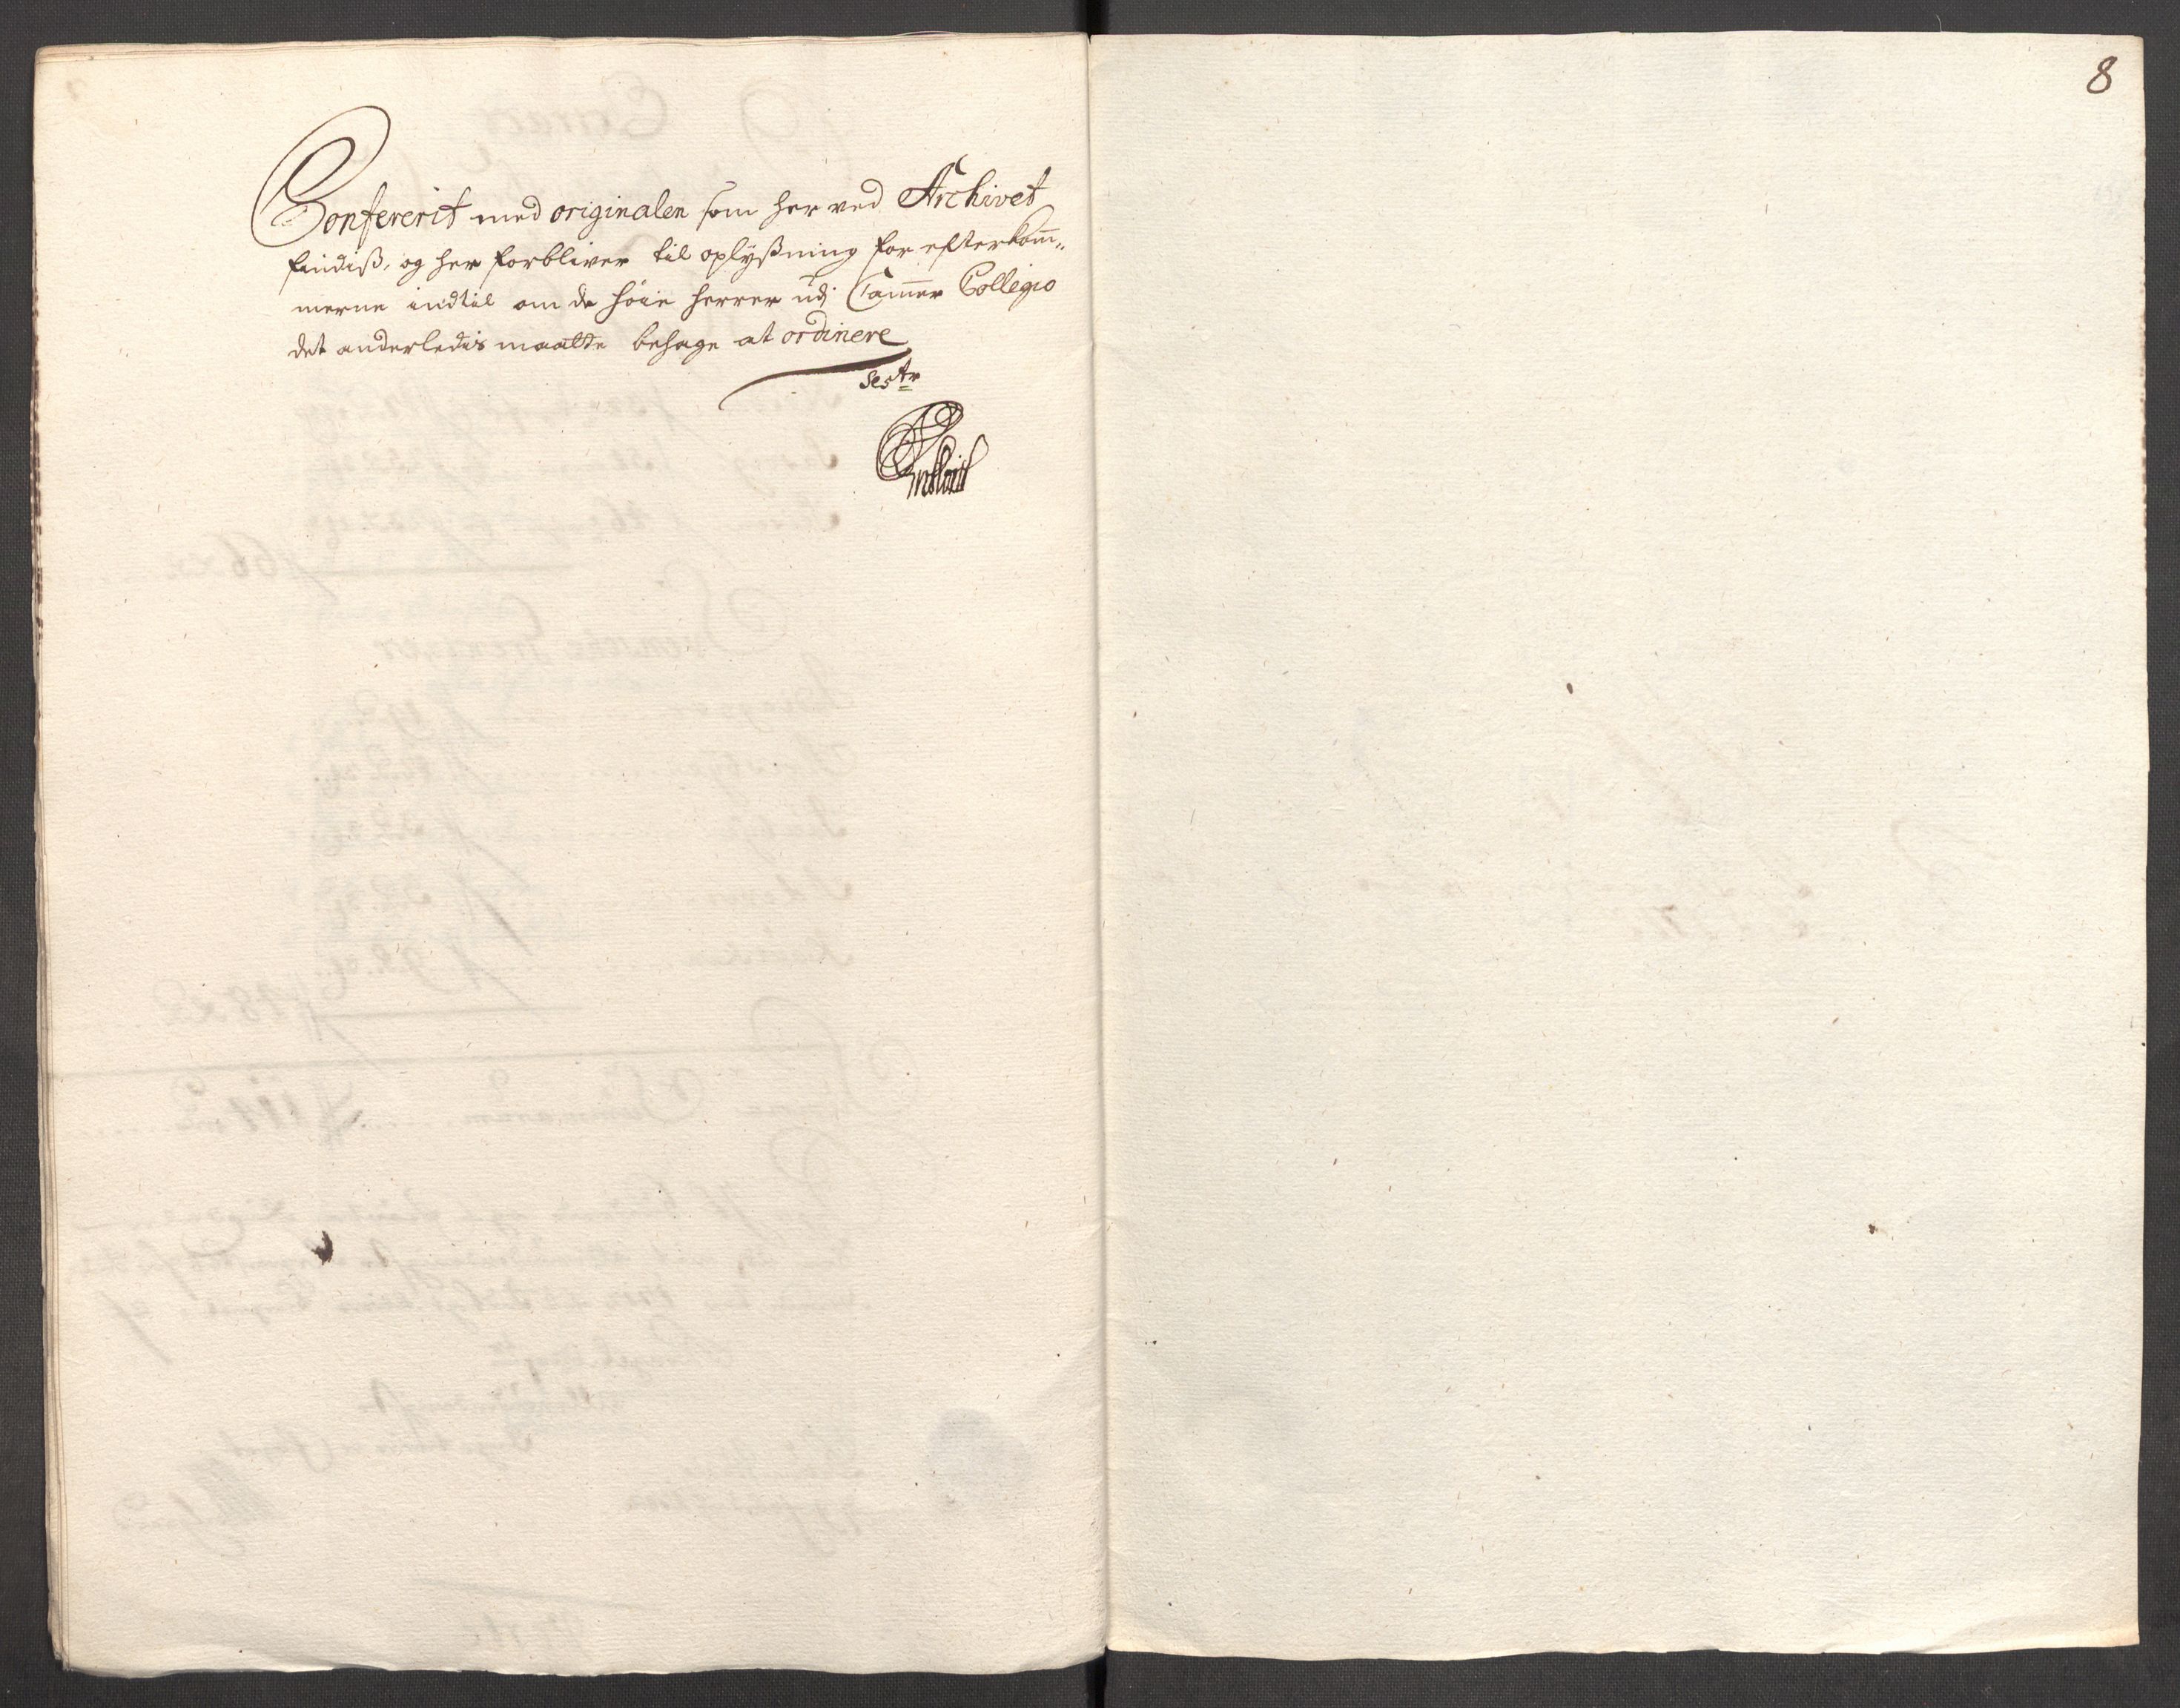 8
Confererit med originalen som her ved Archivet
findiß, og her forbliver til oplyßning for efterkom̄„
merne indtil om de høie herrer udj Cam̄er Collegio
det anderledis maatte behage at ordinere